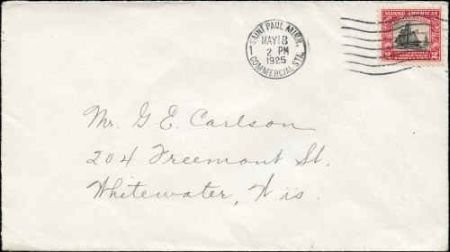 SAINT PAUL, MINN.
MAY 18
2 PM
1925
COMMERCIAL STA.
NORSE AMERICAN
2 2
Mr. G E. Carlson
204 Freemont St.
Whitewater, Wis.